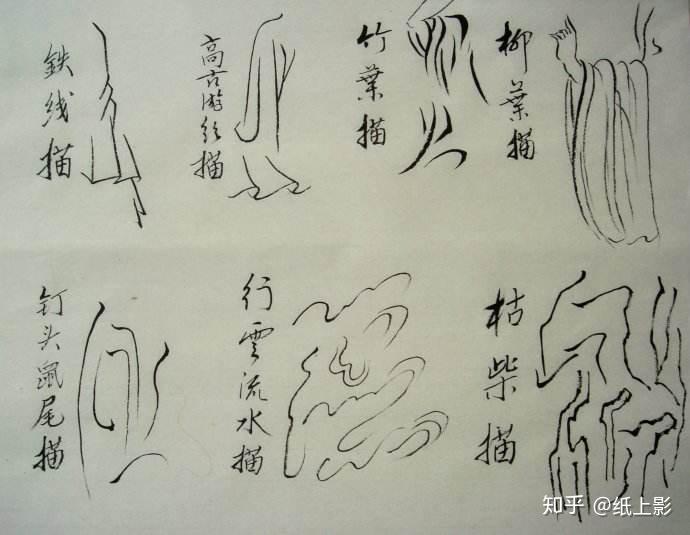 鉄线描
高古游丝描
竹葉描
柳葉描
钉头鼠尾描
行雲流水描
枯柴描
知乎 @纸上影